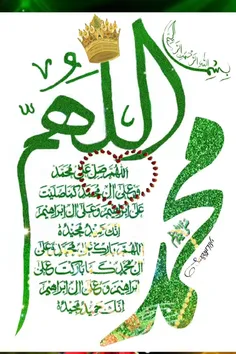 بسم الله الرحمن الرحيم
اللهم
محمد
اللهم صل على محمد
وعلى ال محمد كما صليت
على ابراهيم وعلى ال ابراهيم
انك حميد مجيد
اللهم بارك على محمد وعلى
ال محمد كما باركت على
ابراهيم وعلى ال ابراهيم
انك حميد مجيد